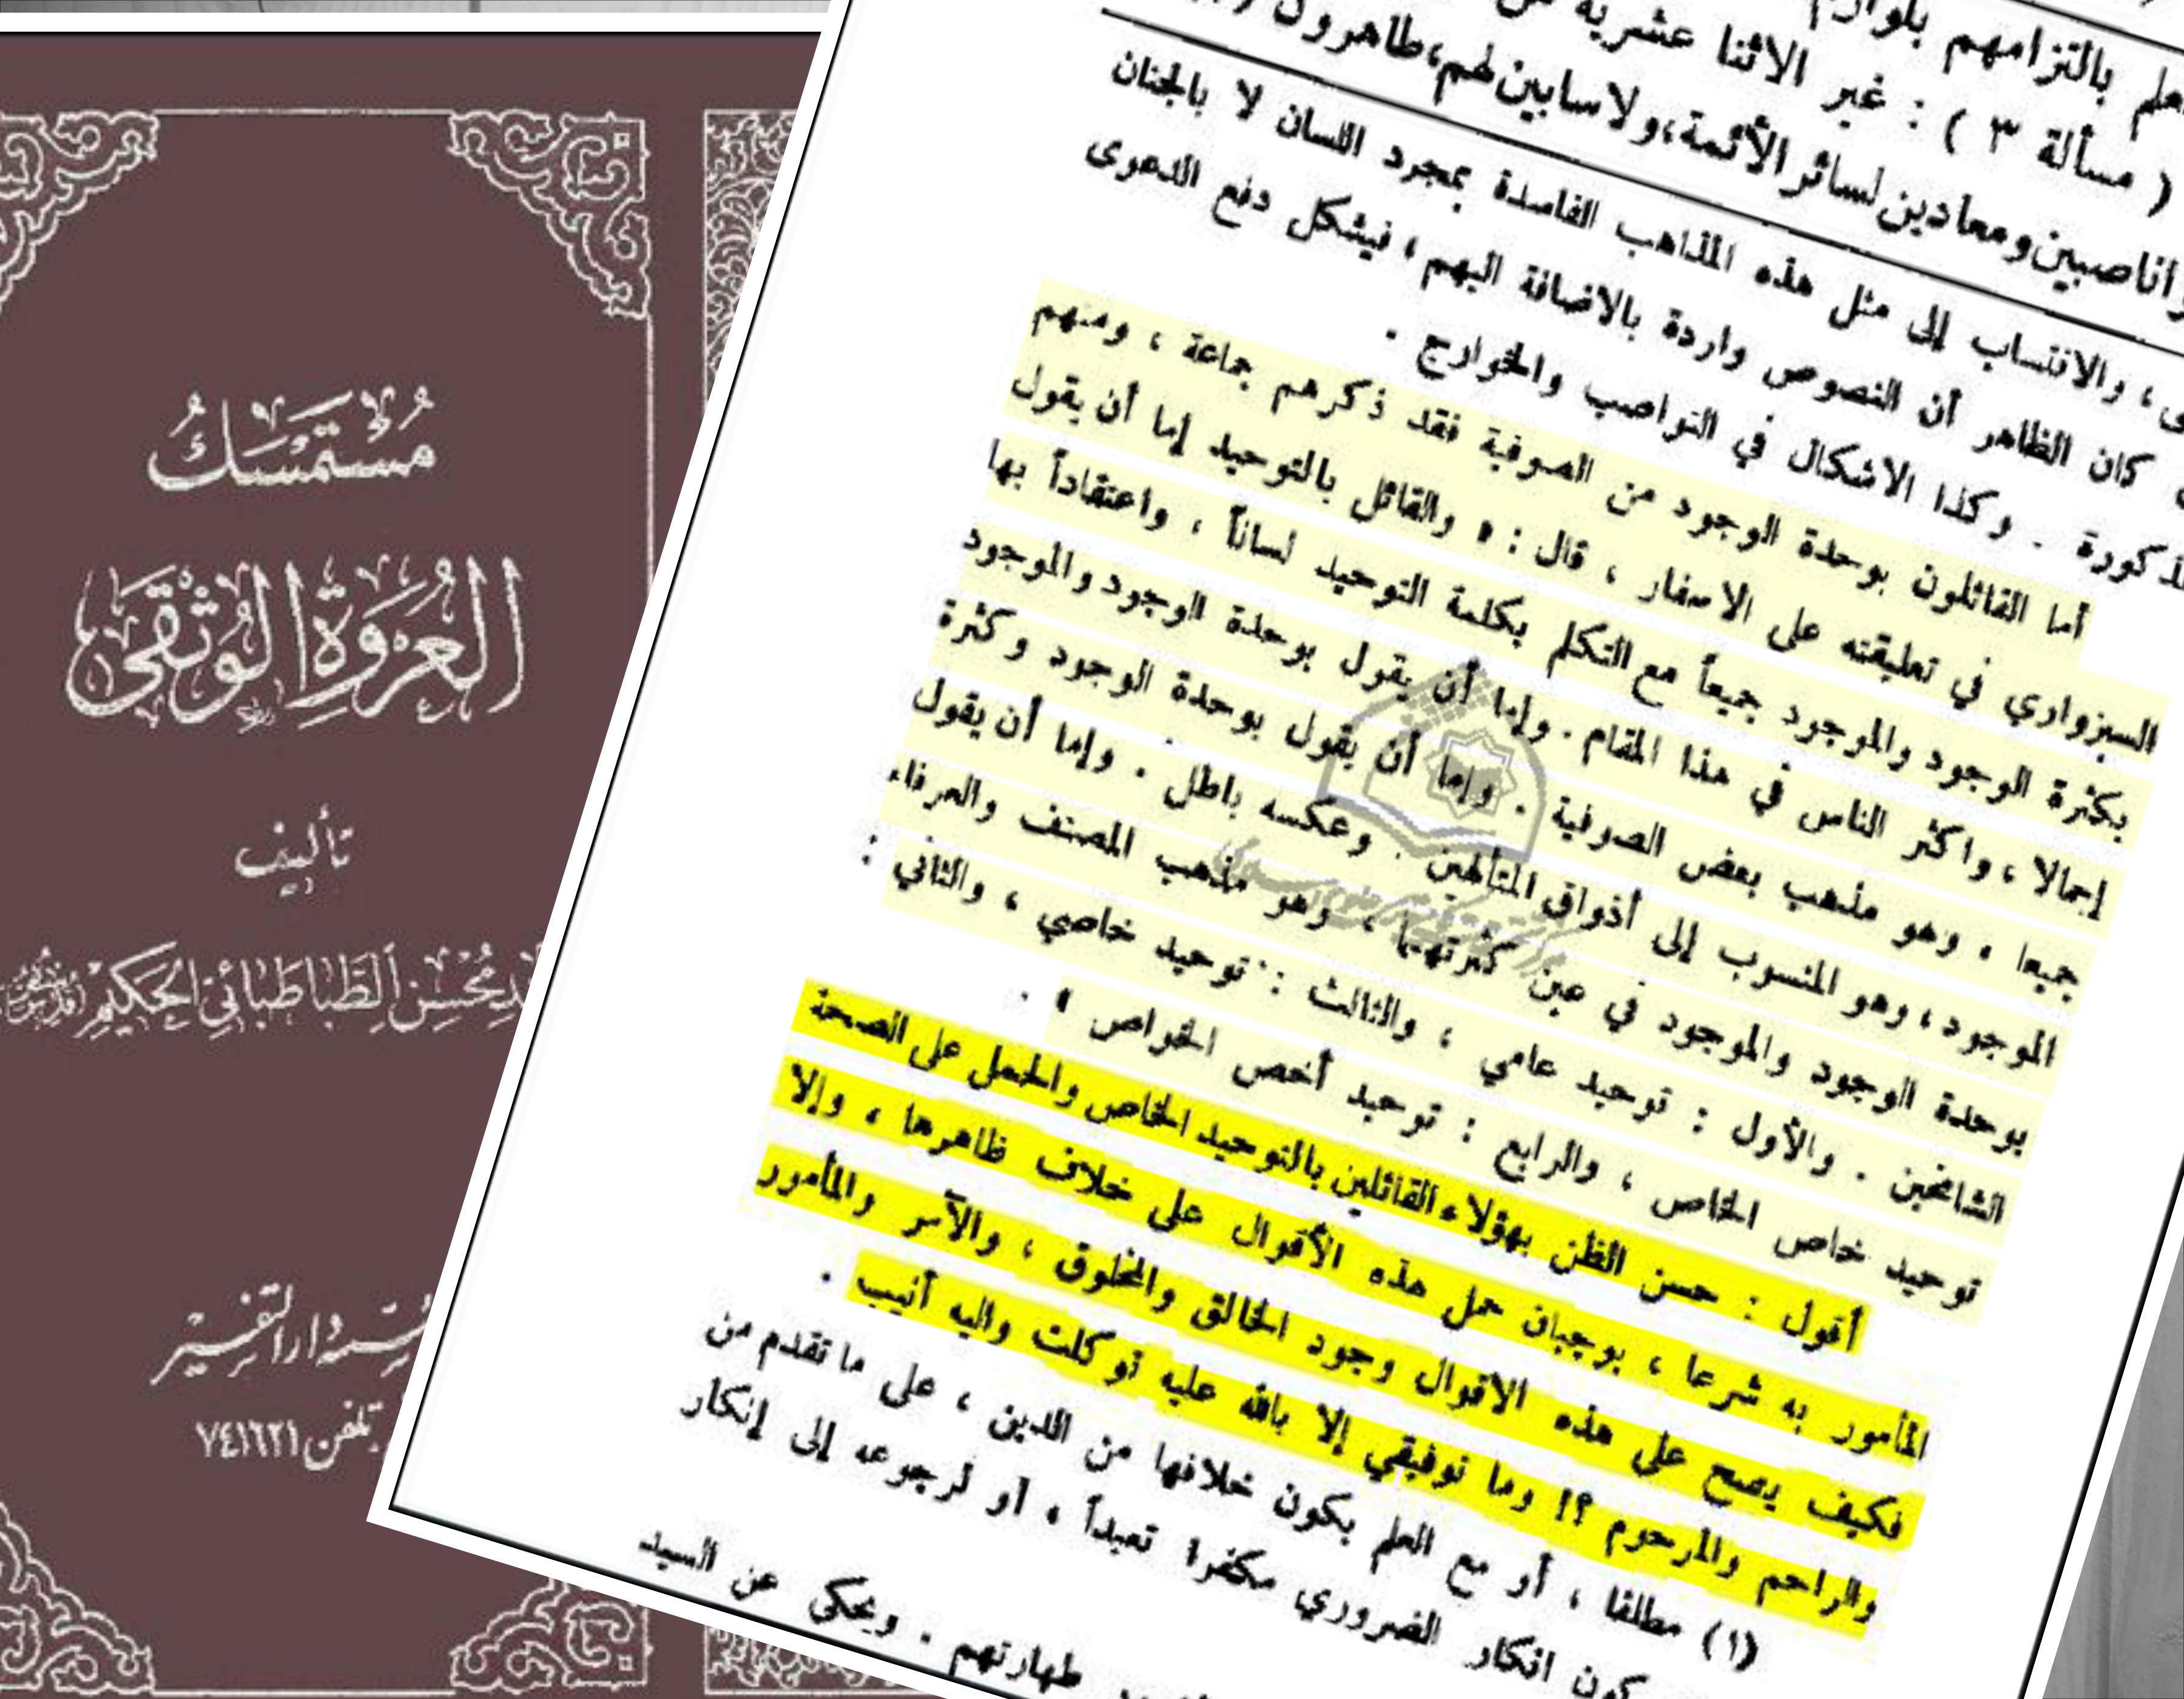 مُسْتَمْسَكُ
العُرْوَةِ الوُثْقَى
تأليف
مُحْسِن الطَّبَاطَبَائِي الحَكِيم
دار التفسير
تلفن ٧٤١٦٢١
بالتزامهم
( مسألة ٣ ) : غير الاثنا عشرية
ومعادين لسائر الأئمة، ولا سابين لهم، طاهرون
، والانتساب إلى مثل هذه المذاهب الفاسدة بمجرد اللسان لا بالجنان
كان الظاهر أن النصوص واردة بالاضافة اليهم ، فيشكل دفع الدعوى
. وكذا الاشكال في النواصب والخوارج .
أما القائلون بوحدة الوجود من الصوفية فقد ذكرهم جماعة ، ومنهم
السبزواري في تعليقته على الاسفار ، قال : « والقائل بالتوحيد إما أن يقول
بكثرة الوجود والموجود جميعاً مع التكلم بكلمة التوحيد لساناً ، واعتقاداً بها
إجمالا ، واكثر الناس في هذا المقام . وإما أن يقول بوحدة الوجود والموجود
جميعا ، وهو مذهب بعض الصوفية . وإما أن يقول بوحدة الوجود وكثرة
الموجود ، وهو المنسوب إلى أذواق المتألهين . وعكسه باطل . وإما أن يقول
بوحدة الوجود والموجود في عين كثرتهما ، وهو مذهب المصنف والعرفاء
الشامخين . والأول : توحيد عامي ، والثالث : توحيد خاصي ، والثاني :
توحيد خاص الخاص ، والرابع : توحيد أخص الخواص » .
أقول : حسن الظن بهؤلاء القائلين بالتوحيد الخاص والحمل على الصحة
المأمور به شرعا ، يوجبان حمل هذه الأقوال على خلاف ظاهرها ، وإلا
فكيف يصح على هذه الاقوال وجود الخالق والمخلوق ، والآمر والمأمور
والراحم والمرحوم ؟! وما توفيقي إلا بالله عليه توكلت واليه أنيب .
(١) مطلقا ، أو مع العلم بكون خلافها من الدين ، على ما تقدم من
كون انكار الضروري مكفرا تعبداً ، أو لرجوعه إلى إنكار
طهارتهم . ويحكى عن السيد